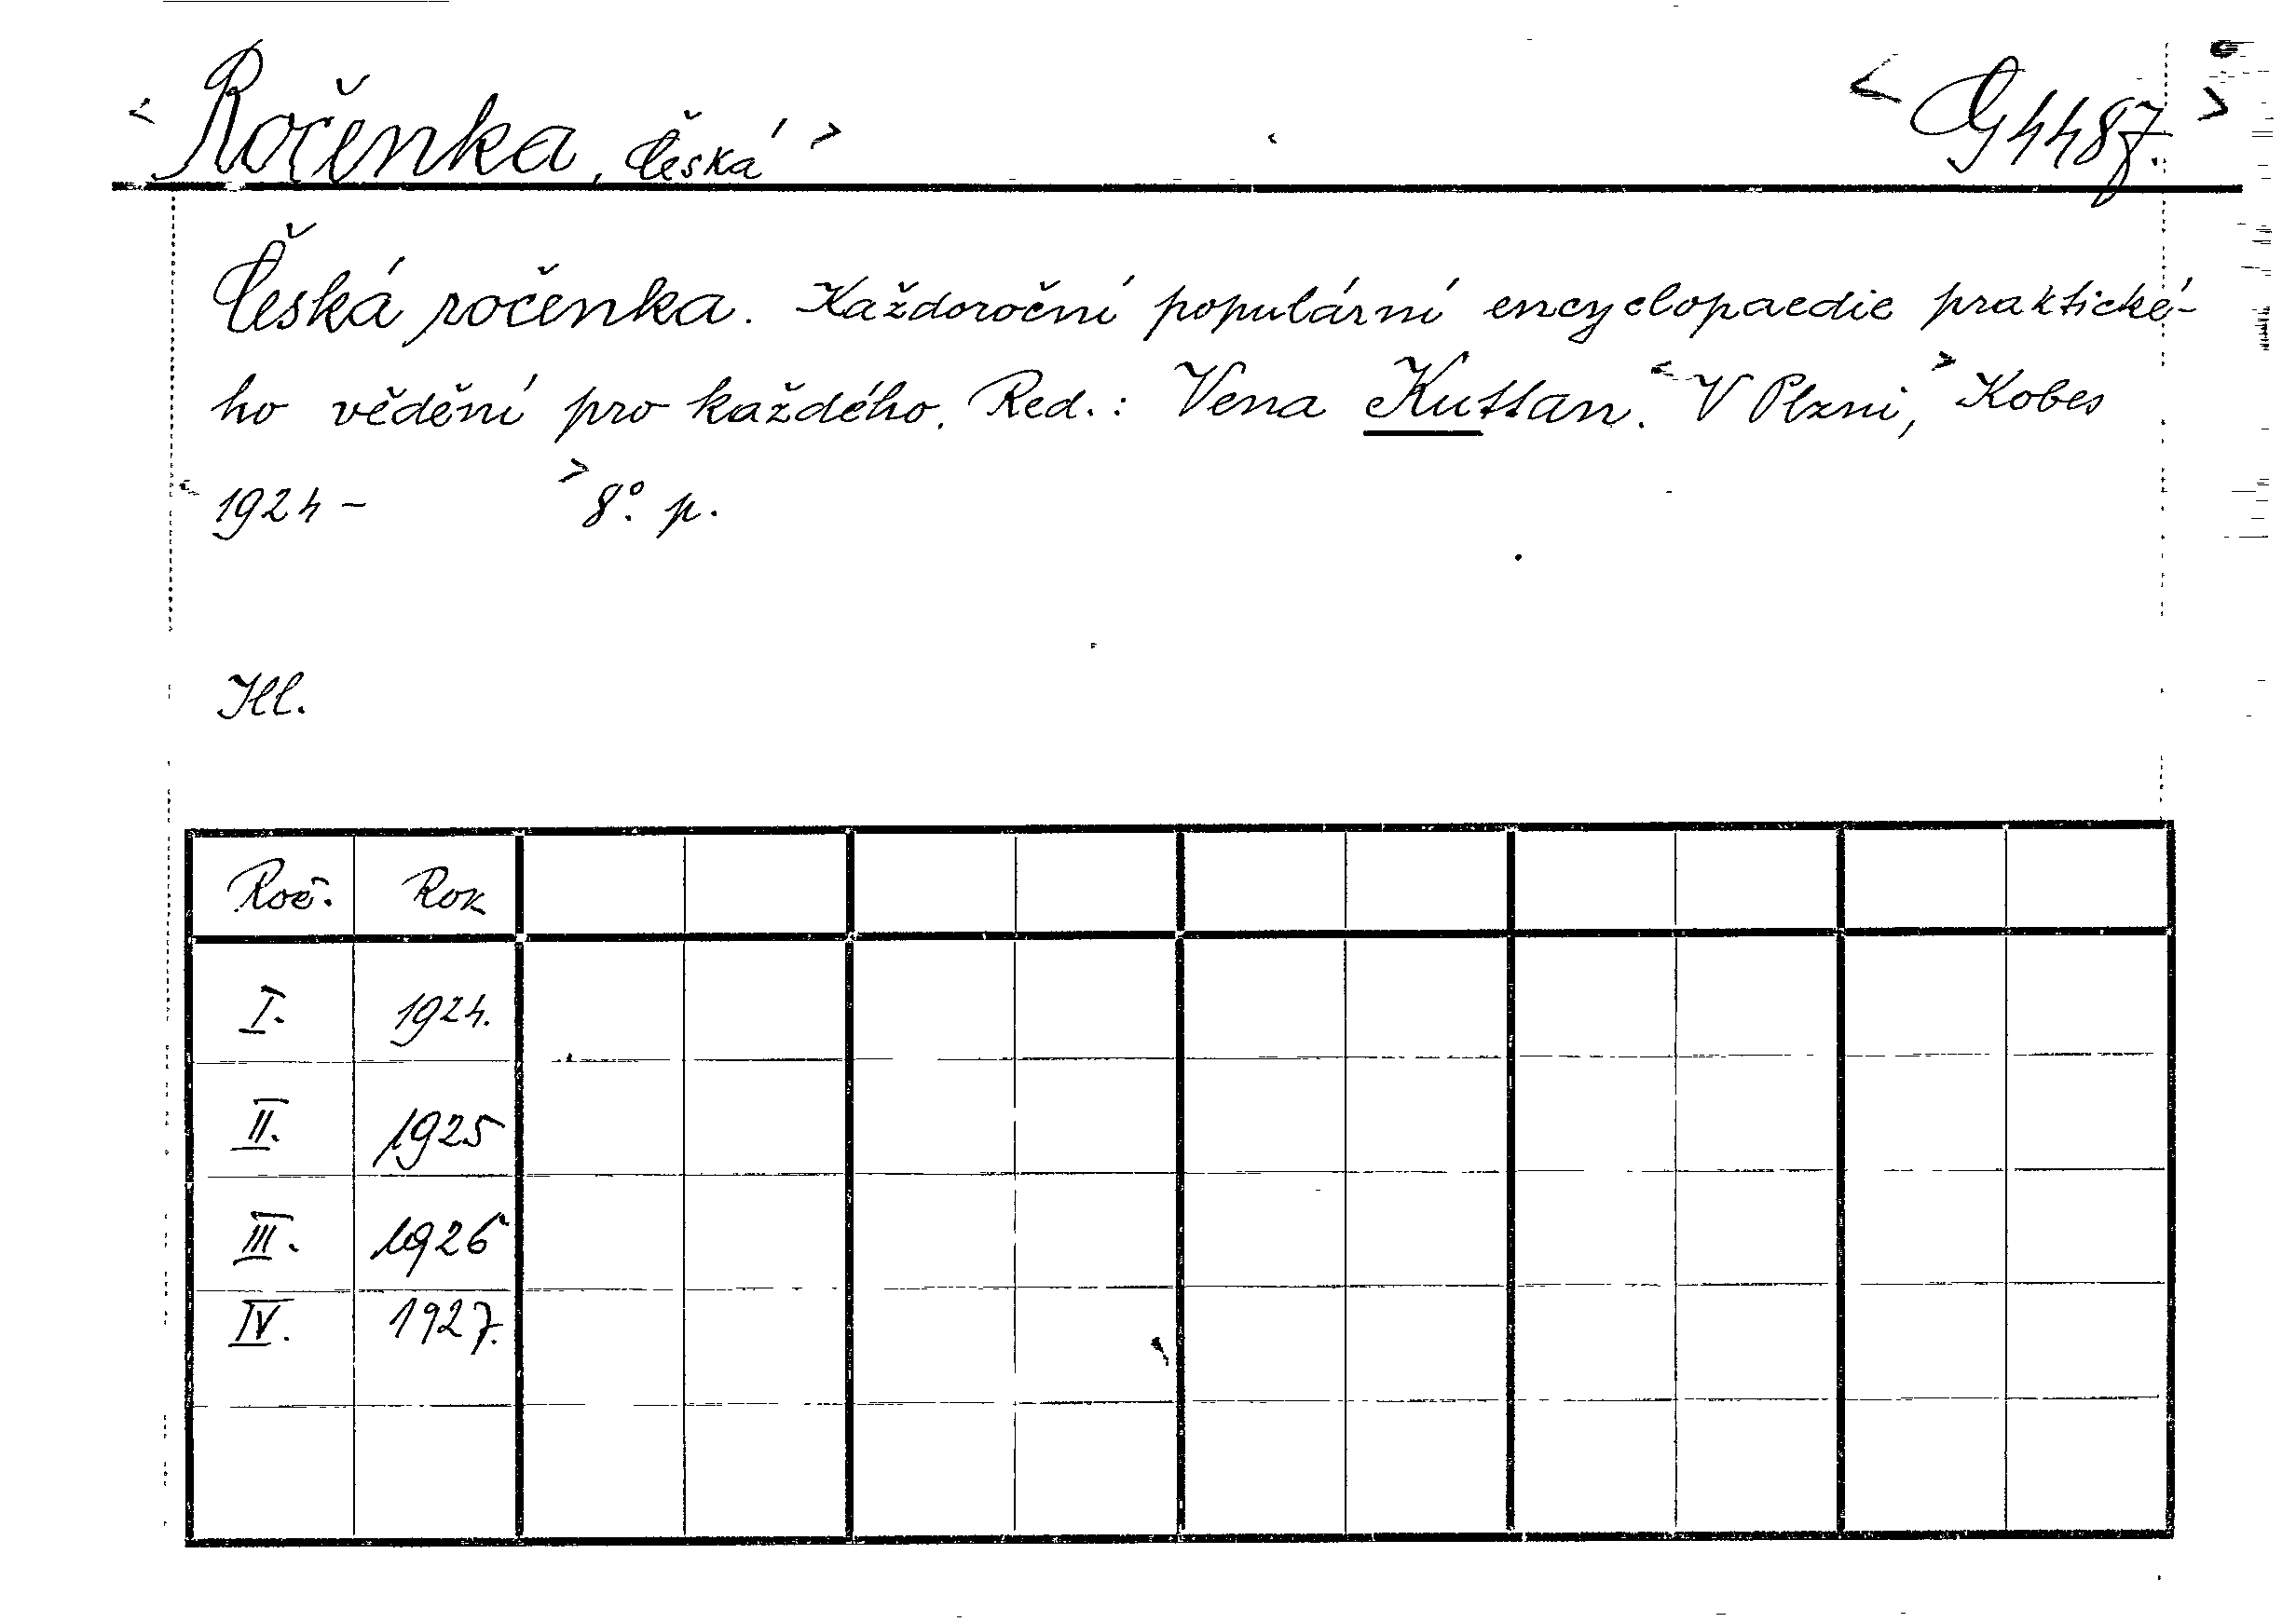 < Ročenka, Česká > < G 4487. >
Česká ročenka. Každoroční populární encyclopaedie praktické-
ho vědění pro každého. Red.: Vena Kuttan. < V Plzni, > Kobes
< 1924 - > 8°. p.
Ill.
Roč. Rok
I. 1924.
II. 1925
III. 1926
IV. 1927.